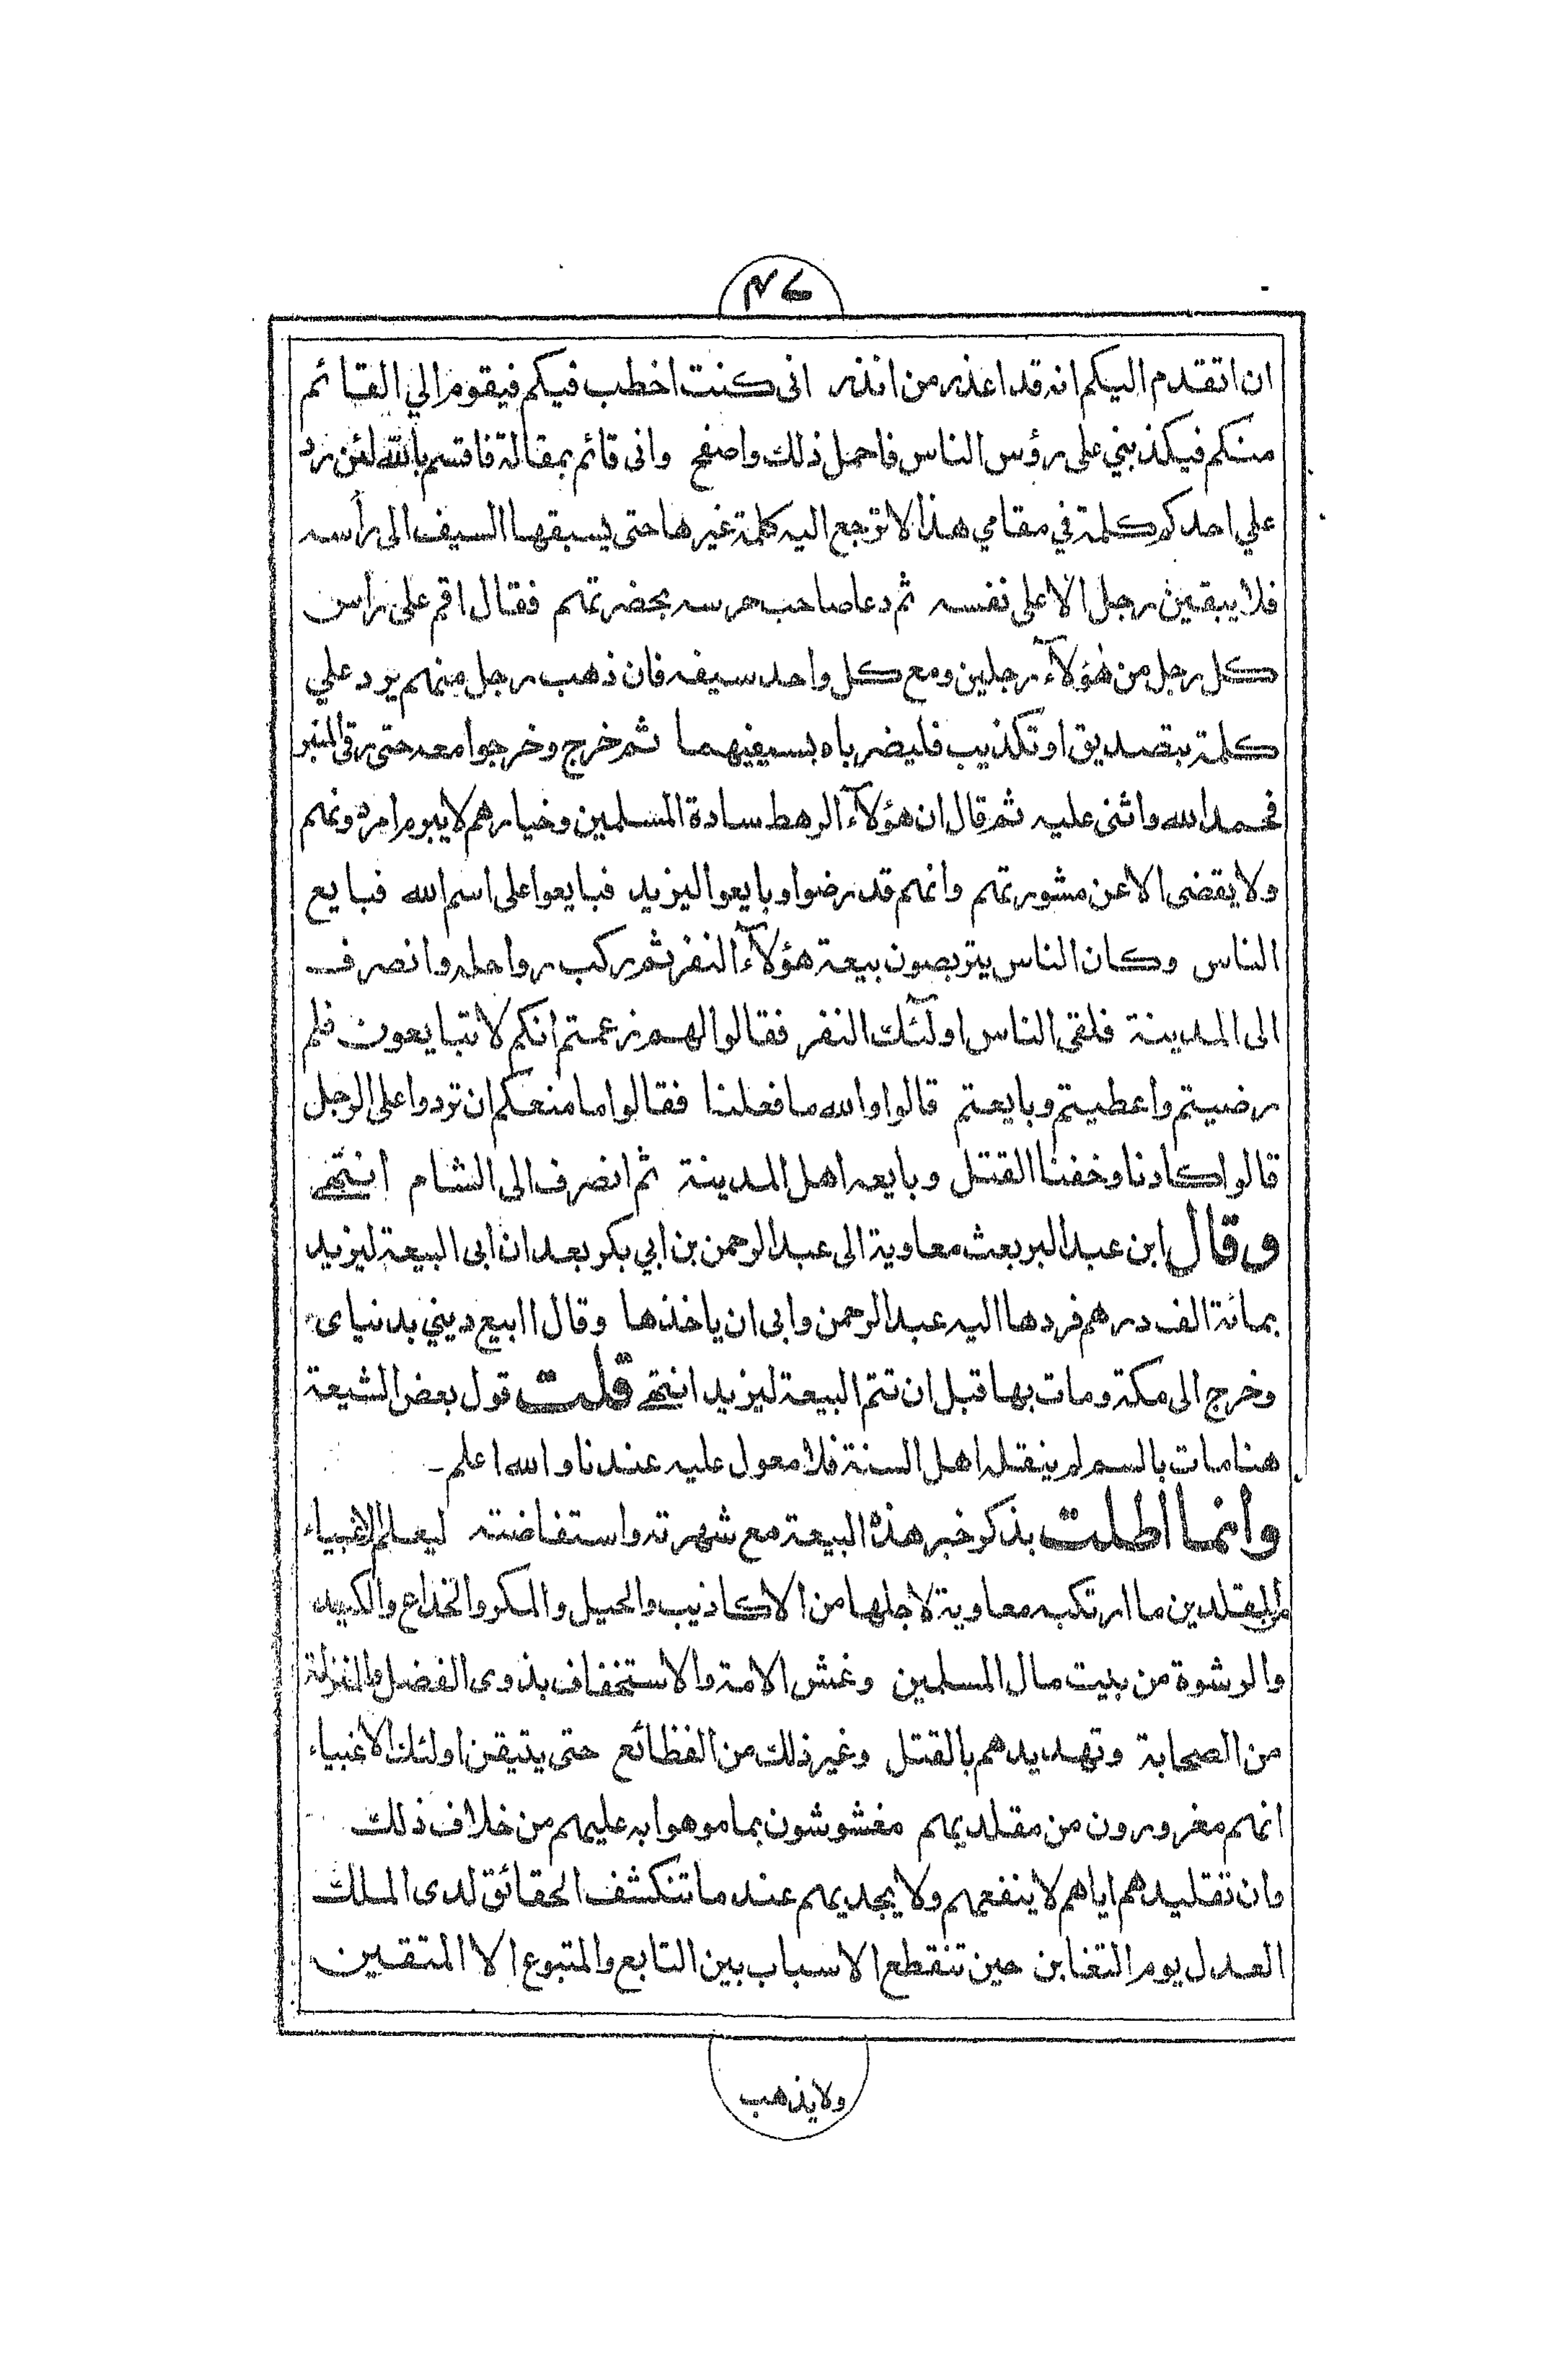 ٤٦
ان اتقدم اليكم انه قد اعذر من انذر انى كنت اخطب فيكم فيقوم الي القائم
منكم فيكذبني على رؤس الناس فاحمل ذلك واصفح وانى قائم بمقالة فاقسم بالله لئن رد
علي احدكم كلمة في مقامي هذا لا ترجع اليه كلمة غيرها حتى يسبقها السيف الى رأسه
فلا يبقين رجل الا على نفسه ثم دعا صاحب حرسه بحضرتهم فقال اقم على رأس
كل رجل من هٰؤلآء رجلين ومع كل واحد سيفه فان ذهب رجل منهم يرد علي
كلمة بتصديق او تكذيب فليضرباه بسيفيهما ثم خرج وخرجوا معه حتى رقى المنبر
فحمد الله واثنى عليه ثم قال ان هؤلآء الرهط سادة المسلمين وخيارهم لا يبرم امر دونهم
ولا يقضى الا عن مشورتهم وانهم قد رضوا وبايعوا ليزيد فبايعوا على اسم الله فبايع
الناس وكان الناس يتربصون بيعة هؤلآء النفر ثم ركب رواحله وانصرف
الى المدينة فلقى الناس اولٓئك النفر فقالوا لهم زعمتم انكم لا تبايعون فلم
رضيتم واعطيتم وبايعتم قالوا والله ما فعلنا فقالوا ما منعكم ان تردوا على الرجل
قالوا كادنا وخفنا القتل وبايعه اهل المدينة ثم انصرف الى الشام انتهى
وقال ابن عبد البر بعث معاوية الى عبد الرحمن بن ابي بكر بعد ان ابى البيعة ليزيد
بمائة الف درهم فردها اليه عبد الرحمن وابى ان ياخذها وقال اابيع ديني بدنياى
وخرج الى مكة ومات بها قبل ان تتم البيعة ليزيد انتهى قلت قول بعض الشيعة
هنا مات بالسم لم ينقله اهل السنة فلا معول عليه عندنا والله اعلم ـ
وانما اطلت بذكر خبر هذه البيعة مع شهرته واستفاضته ليعلم الاغبياء
من المقلدين ما ارتكبه معاوية لاجلها من الاكاذيب والحيل والمكر والخداع والكيد
والرشوة من بيت مال المسلمين وغش الامة والاستخفاف بذوى الفضل والمنزلة
من الصحابة وتهديدهم بالقتل وغير ذلك من الفظائع حتى يتيقن اولئك الاغبياء
انهم مغرورون من مقلديهم مغشوشون بما موهوا به عليهم من خلاف ذلك
وان تقليدهم اياهم لا ينفعهم ولا يجديهم عند ما تنكشف الحقائق لدى الملك
العدل يوم التغابن حين تنقطع الاسباب بين التابع والمتبوع الا المتقين
ولا يذهب